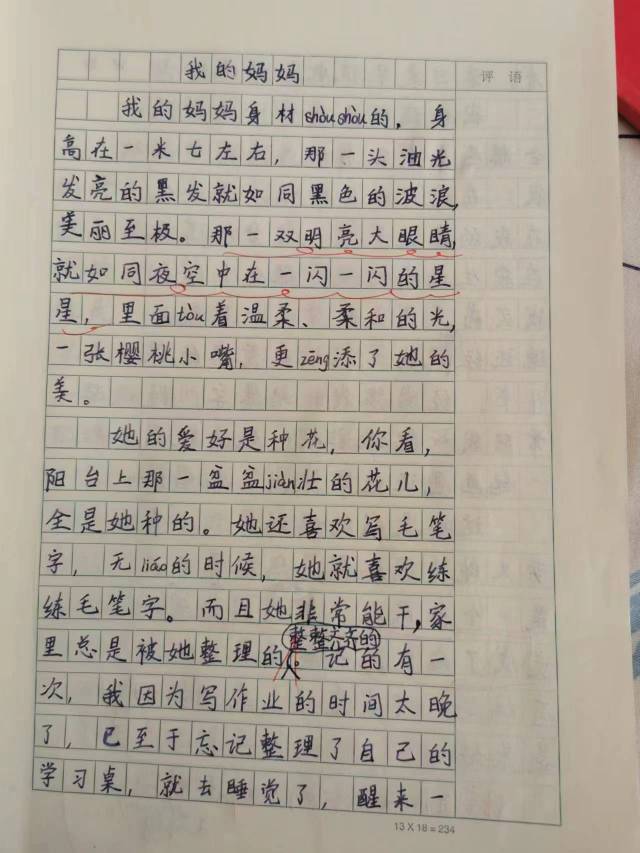 评语
我的妈妈
我的妈妈身材shòu shòu的，身
高在一米七左右，那一头油光
发亮的黑发就如同黑色的波浪，
美丽至极。那一双明亮大眼睛，
就如同夜空中在一闪一闪的星
星，里面tòu着温柔、柔和的光，
一张樱桃小嘴，更zēng添了她的
美。
她的爱好是种花，你看，
阳台上那一盆盆jiàn壮的花儿，
全是她种的。她还喜欢写毛笔
字，无liáo的时候，她就喜欢练
练毛笔字。而且她非常能干，家
整整齐齐的
里总是被她整理的。记的有一
次，我因为写作业的时间太晚
了，已至于忘记整理了自己的
学习桌，就去睡觉了，醒来一
13×18=234